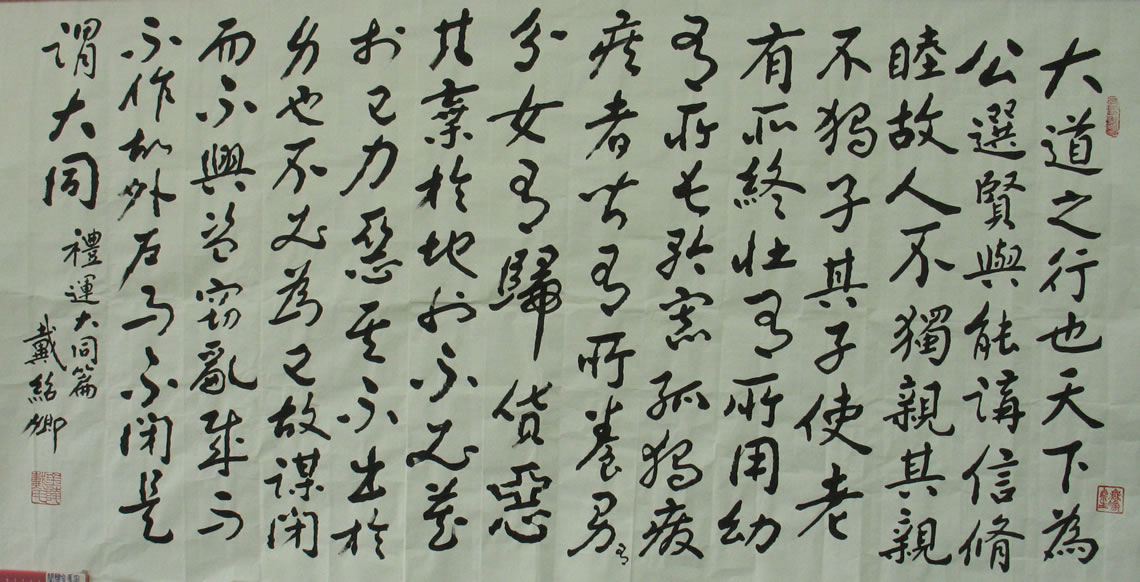 大道之行也天下為
公選賢與能講信脩
睦故人不獨親其親
不獨子其子使老
有所終壯有所用幼
有所長矜寡孤獨廢
疾者皆有所養男有
分女有歸貨惡
其棄於地也不必藏
於己力惡其不出於
身也不必為己故謀閉
而不興盜竊亂賊而
不作故外戶而不閉是
謂大同
禮運大同篇
戴紹卿